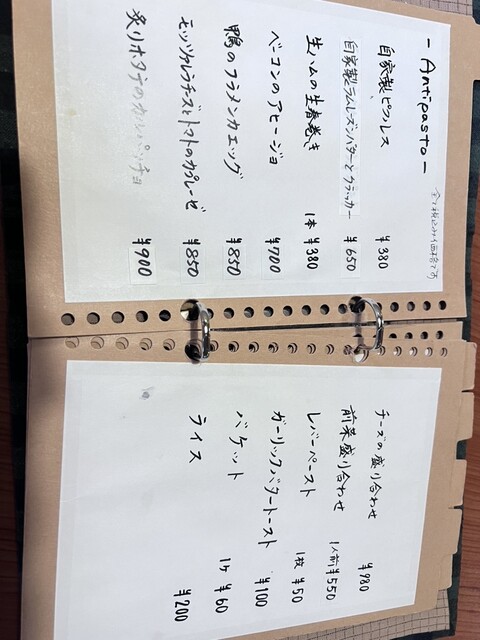 - Antipasto -
全て税込み価格です
自家製ピクルス ¥380
自家製ラムレーズンバターとクラッカー ¥650
生ハムの生春巻き 1本 ¥380
ベーコンのアヒージョ ¥700
鴨のフラメンカエッグ ¥850
モッツァレラチーズとトマトのカプレーゼ ¥850
炙りホタテのカルパッチョ ¥900
チーズの盛り合わせ ¥980
前菜盛り合わせ 1人前 ¥550
レバーペースト 1枚 ¥50
ガーリックバタートースト ¥100
バケット 1ケ ¥60
ライス ¥200